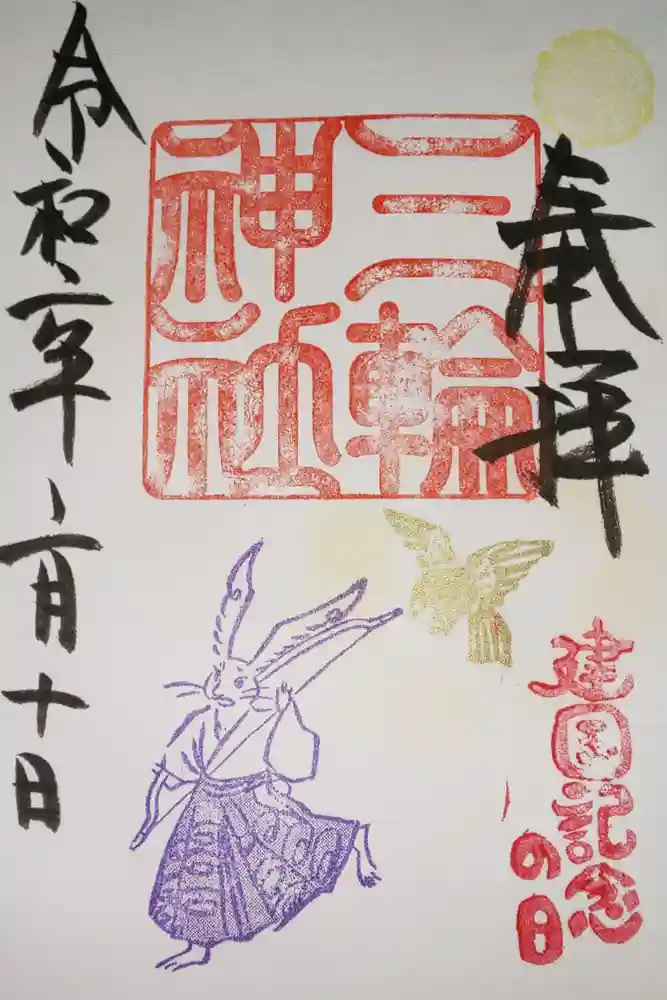 奉拝
建国記念
の日
三輪
神社
令和二年二月十日